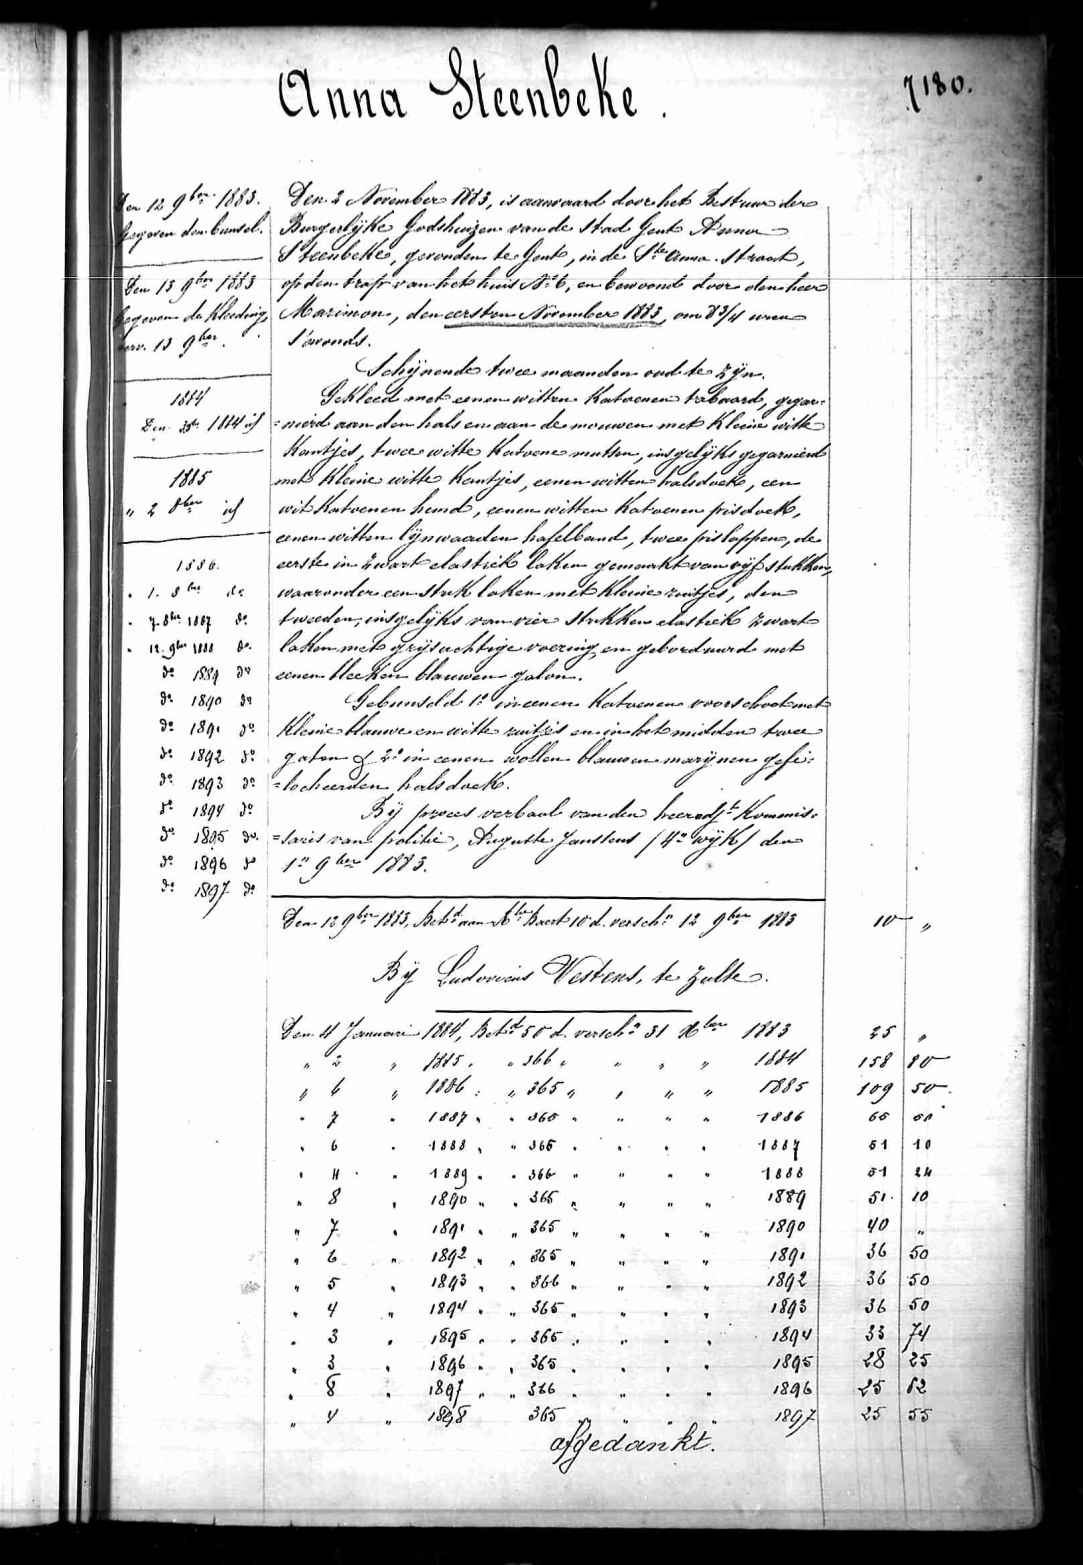 Anna Steenbeke.
7180.
Den 12 9ber 1883.
Gegeven den bunsel.
Den 13 9ber 1883
Gegeven de Kleeding
verv. 13 9ber.
1884
Den 1884 id
1885
" 2 8ber id
1886.
" 1. 8ber do
" 7 8ber 1887 do
" 12 9ber 1888 do
do 1889 do
do 1890 do
do 1891 do
do 1892 do
do 1893 do
do 1894 do
do 1895 do.
do 1896 do
do 1897 do
Den 2 November 1883, is aanvaard door het Bestuur der
Burgerlyke Godshuizen van de stad Gent Anna
Steenbeke, gevonden te Gent, in de Ste Anna-straat,
op den trap van het huis No 6, en bewoond door den heer
Marimon, den eersten November 1883, om 8 3/4 uren
s'avonds.
Schijnende twee maanden oud te zyn.
Gekleed met eenen witten Katoenen tabaard, gegar=
=nierd aan den hals en aan de mouwen met Kleine witte
Kantjes, twee witte Katoene mutsen, insgelyks gegarneerd
met Kleine witte Kantjes, eenen witten halsdoek, een
wit Katoenen hemd, eenen witten Katoenen pisdoek,
eenen witten lynwaaden hafelband, twee pislappen, de
eerste in zwart elastiek laken gemaakt van vyf stukken,
waaronder een stuk laken met Kleine ruitjes, den
tweeden, insgelyks van vier stukken elastiek zwart
laken met grysachtige voering, en geborduurd met
eenen bleeken blauwen galon.
Gebunseld 1o in eenen Katoenen voorschoot met
Kleine blauwe en witte ruitjes en in het midden twee
gaten & 2o in eenen wollen blauwen marynen gefi=
=locheerden halsdoek.
By proces verbaal van den heer adjt Kommis=
=saris van politie, Auguste Janssens /4e wyk/ den
1n 9ber 1883.
Den 12 9ber 1883, Betd aan Baert 10 d. versch. 12 9ber 1883 10 "
By Ludovicus Vestens, te Zulte.
Den 4 Januari 1884, Betd 50 d. versch. 31 Xber 1883 25 "
" 2 " 1885 " " 366 " " " " 1884 158 80
" 6 " 1886 " " 365 " " " " 1885 109 50
" 7 " 1887 " " 365 " " " " 1886
" 6 " 1888 " " 365 " " " " 1887 51 10
" 4 " 1889 " " 366 " " " " 1888 51 24
" 8 " 1890 " " 365 " " " " 1889 51 10
" 7 " 1891 " " 365 " " " " 1890 40 "
" 6 " 1892 " " 365 " " " " 1891 36 50
" 5 " 1893 " " 366 " " " " 1892 36 50
" 4 " 1894 " " 365 " " " " 1893 36 50
" 3 " 1895 " " 365 " " " " 1894 33 74
" 3 " 1896 " " 365 " " " " 1895 28 25
" 8 " 1897 " " 366 " " " " 1896 25 62
" 4 " 1898 365 " " " " 1897 25 55
afgedankt.